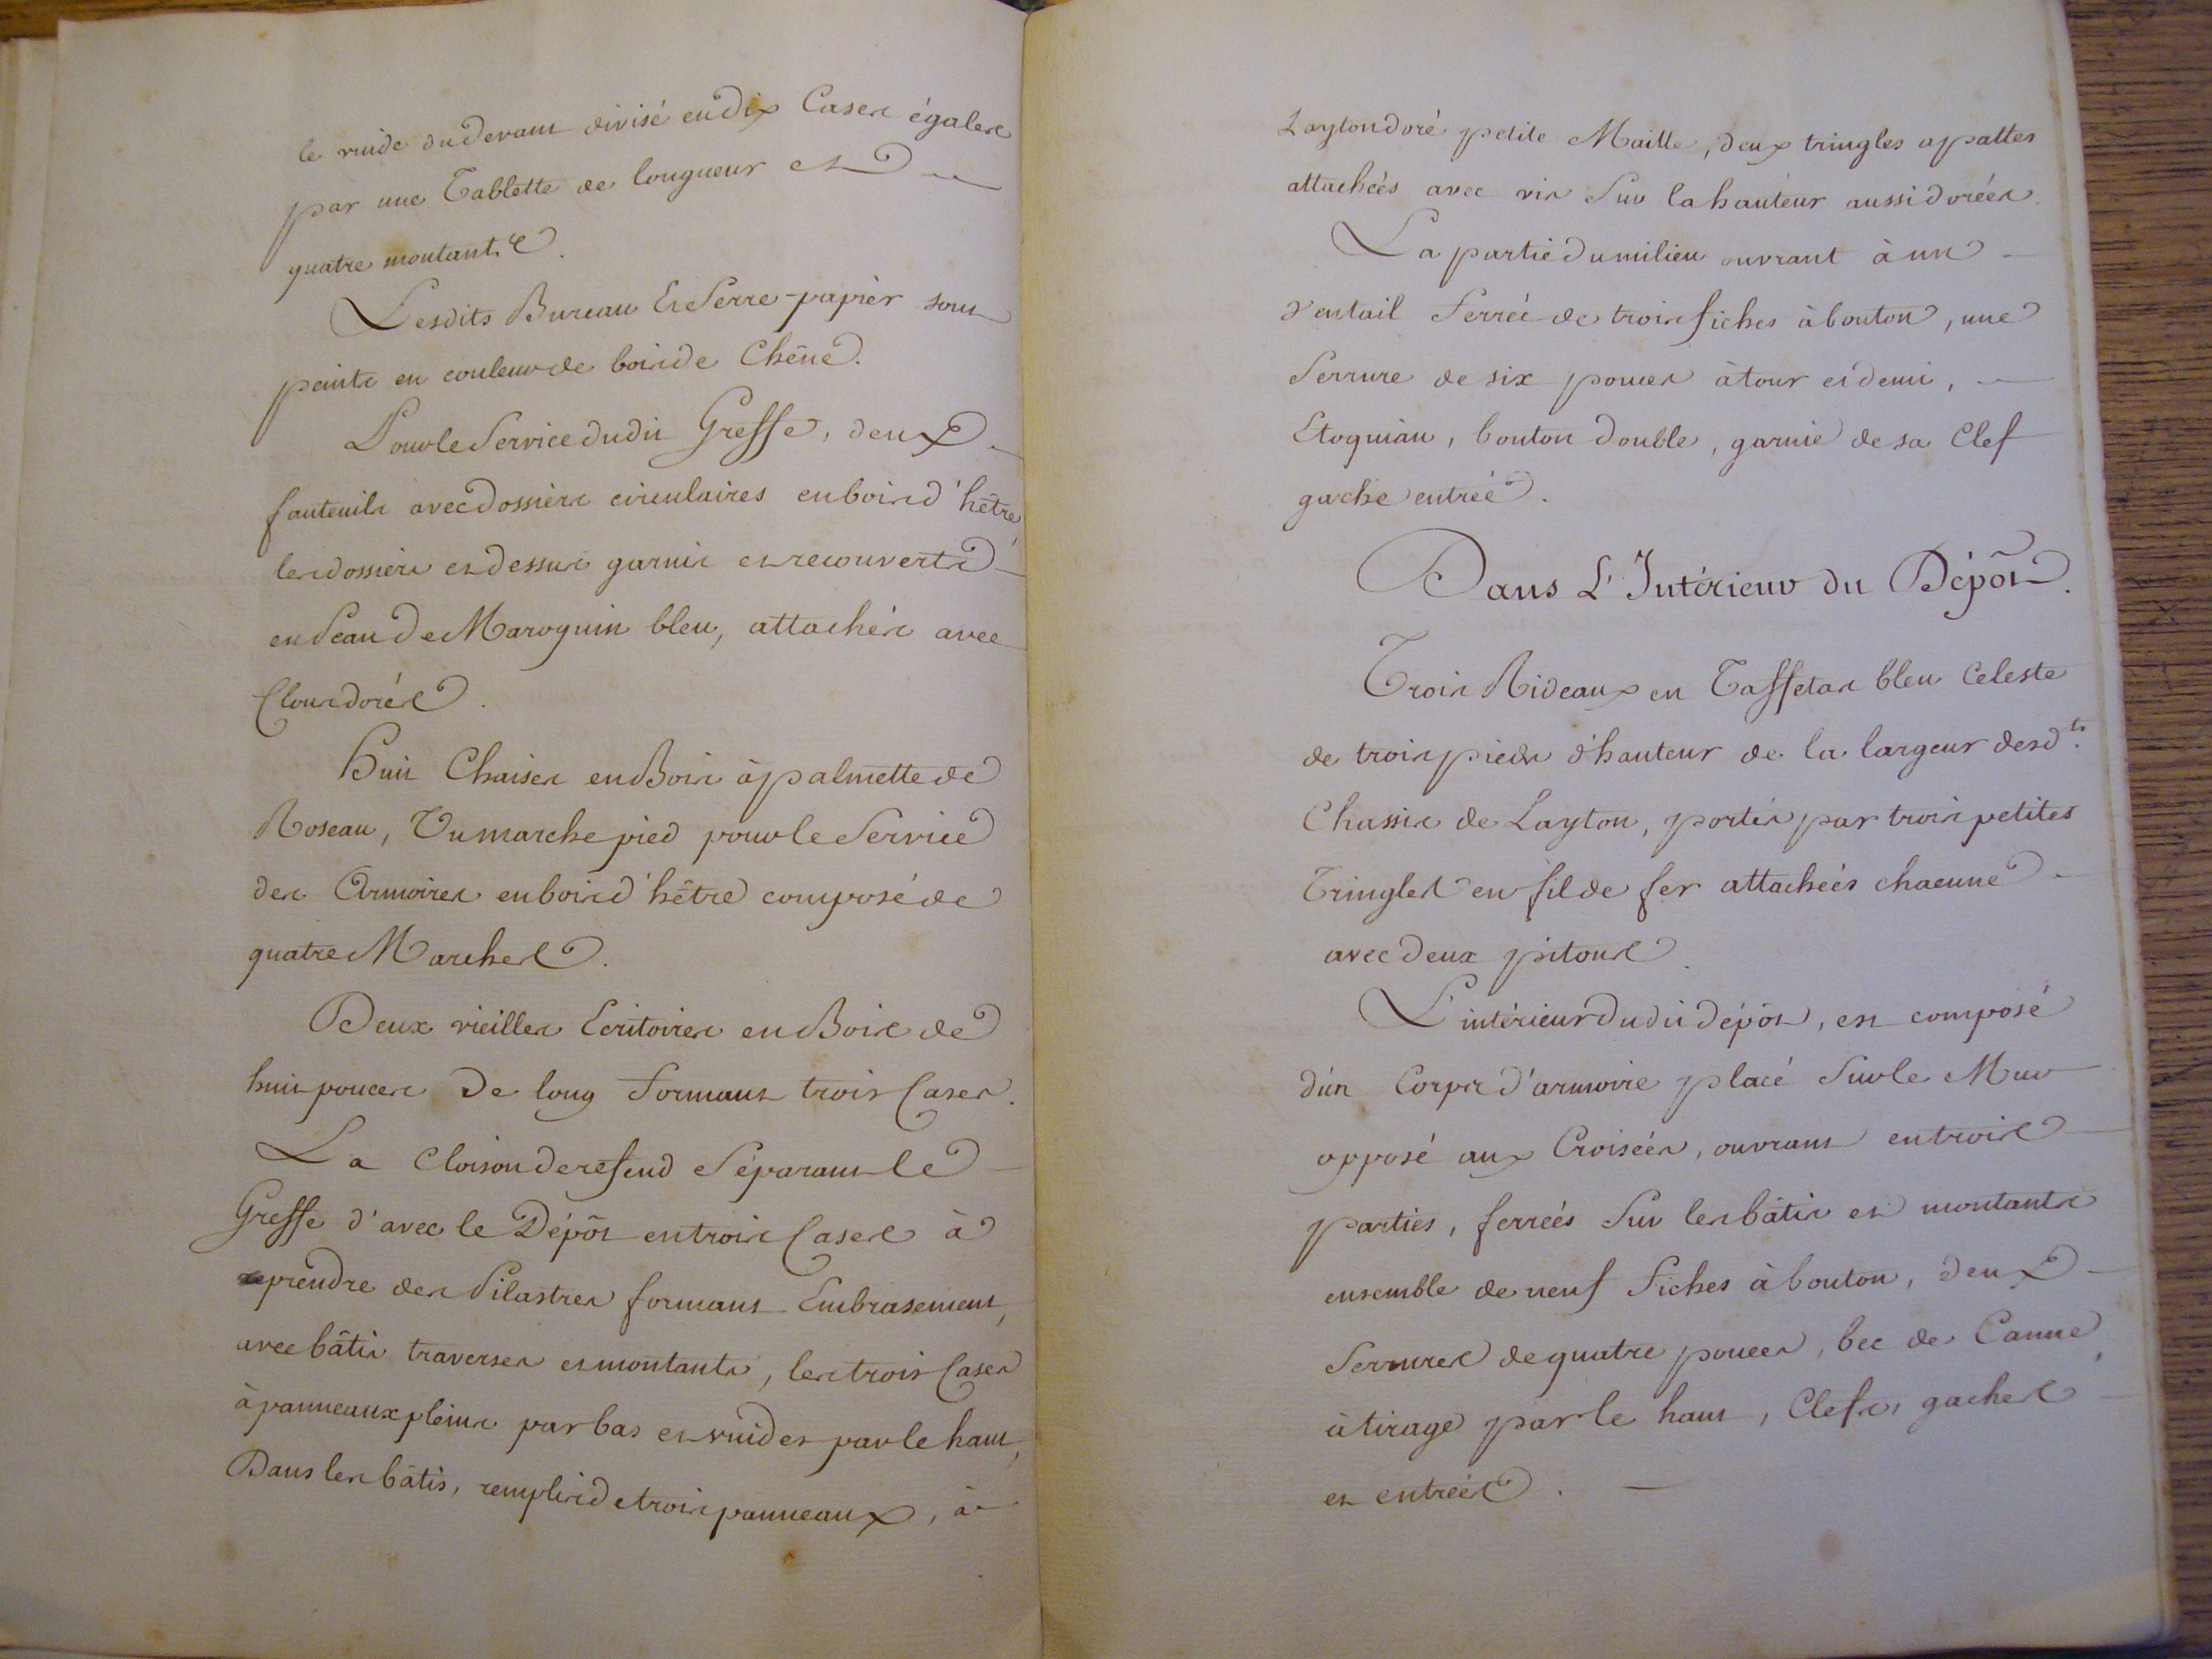 le vuide du devant divisé en dix Cases égales
par une Tablette de longueur et
quatre montants.
Lesdits Bureau Et Serre-papier sont
peints en couleur de bois de Chêne.
Pour le Service dudit Greffe, deux
fauteuils avec dossiers circulaires en bois d'hêtre,
les dossiers et dessus garnis et recouverts
en Peau de Maroquin bleu, attachés avec
Clous dorés.
Huit Chaises en Bois à palmette de
Roseau, Un marche pied pour le Service
des Armoires en bois d'hêtre composé de
quatre Marches.
Deux vieilles Ecritoires en Bois de
huit pouces De long formant trois Cases.
La Cloison de refend Séparant le
Greffe d'avec le Dépôt en trois Cases à
prendre des Pilastres formant Embrasement,
avec bâtis traverses et montants, les trois Cases
à panneaux pleins par bas et vuides par le haut,
Dans les bâtis, remplis de trois panneaux, à
Layton doré petite Maille, deux tringles a pattes
attachées avec vis Sur la hauteur aussi dorées.
La partie du milieu ouvrant à un
Ventail ferrée de trois fiches à bouton, une
Serrure de six pouces à tour et demi,
Etoquiau, bouton double, garnie de sa Clef
gache entrée.
Dans L'Intérieur du Dépôt.
Trois Rideaux en Taffetas bleu Celeste
de trois pieds d'hauteur de la largeur desd.ts
Chassis de Layton, portés par trois petites
Tringles en fil de fer attachées chacune
avec deux pitons.
L'intérieur dudit dépôt, est composé
d'un Corps d'armoire placé Sur le Mur
opposé aux Croisées, ouvrant en trois
parties, ferrées Sur les bâtis et montants
ensemble de neuf fiches à bouton, deux
Serrures de quatre pouces, bec de Canne
à tirage par le haut, Clefs, gaches
et entrées.